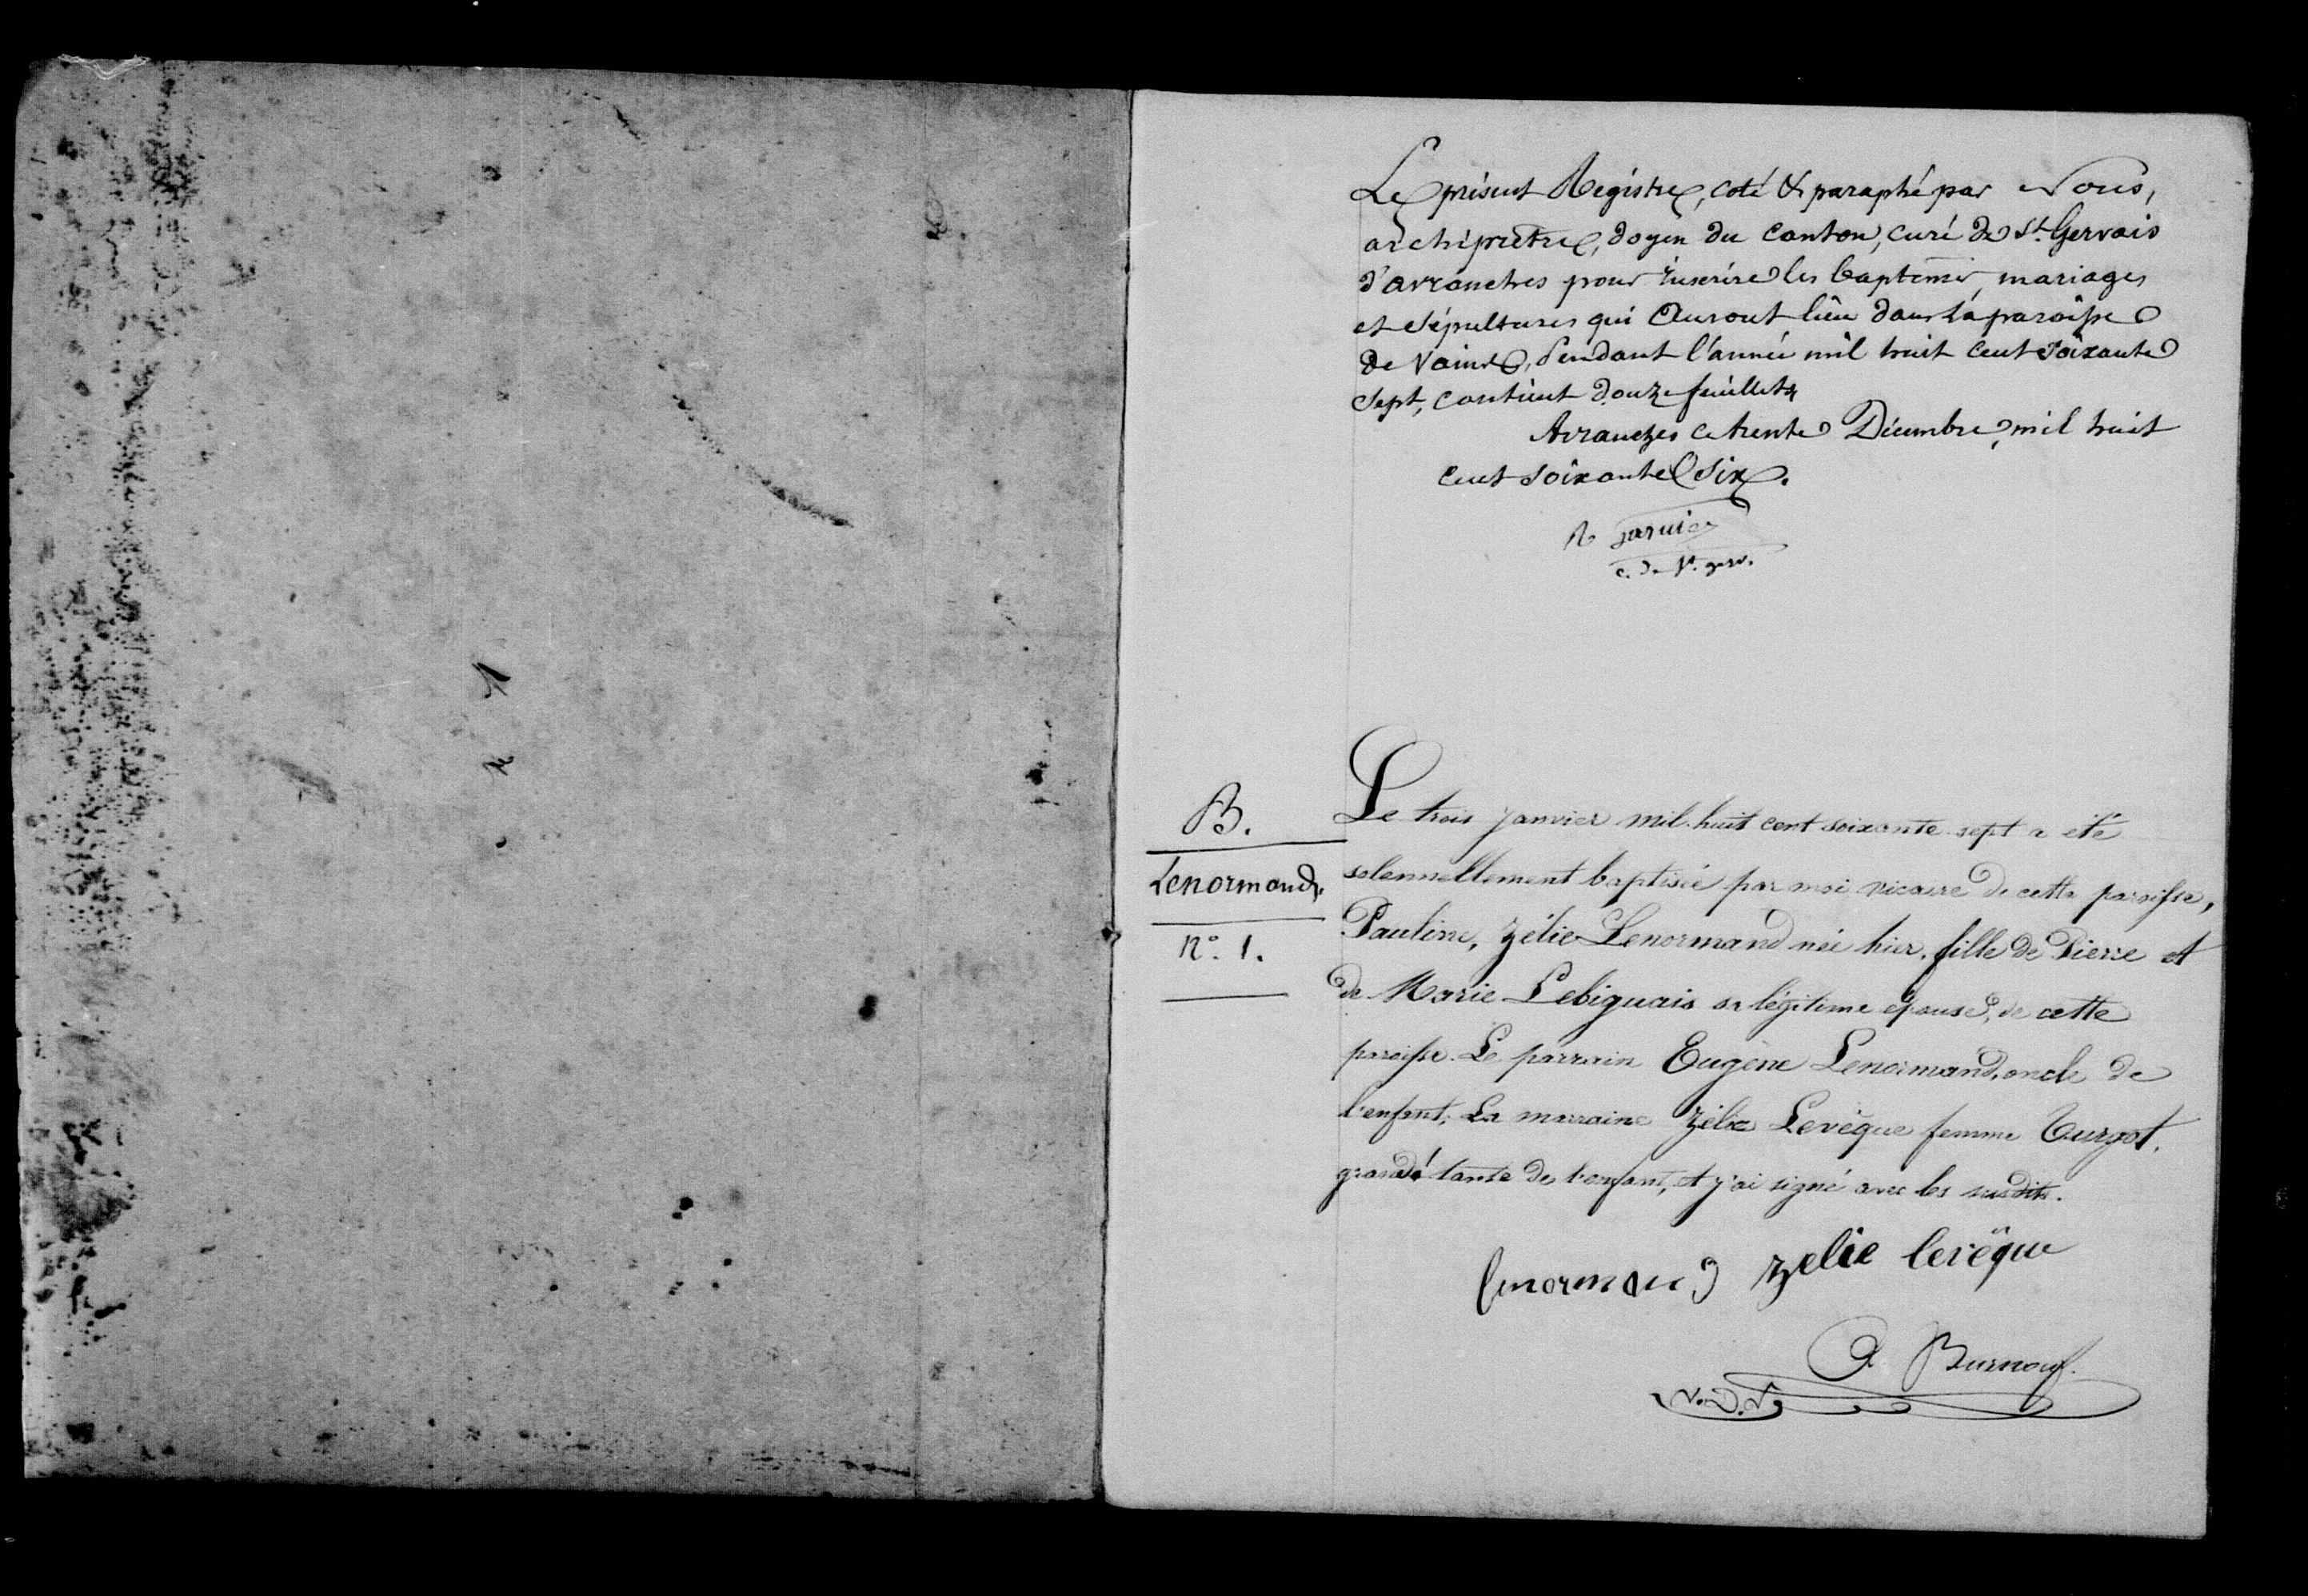 Le présent Registre, coté & paraphé par Nous,
archiprêtre, doyen du Canton, curé de St. Gervais
d'avranches pour inscrire les baptêmes, mariages
et sépultures qui Auront lieu dans la paroisse
de Vains, Pendant l'année mil huit cent soixante
sept, contient douze feuillets
Avranches ce trente Décembre, mil huit
cent soixante Six.
c. de St. gerv.
B.
Lenormand.
N° 1.
Le trois janvier mil huit cent soixante sept a été
solennellement baptisée par moi vicaire de cette paroisse,
Pauline, Zélie Lenormand née hier, fille de Pierre et
de Marie Lebiguais sa légitime épouse, de cette
paroisse. Le parrain Eugène Lenormand, oncle de
l'enfant; La marraine Zélie Levêque femme Turgot,
grand'tante de l'enfant, et j'ai signé avec les susdits.
lenormand zelie levêque
Burnouf.
v. D. V.